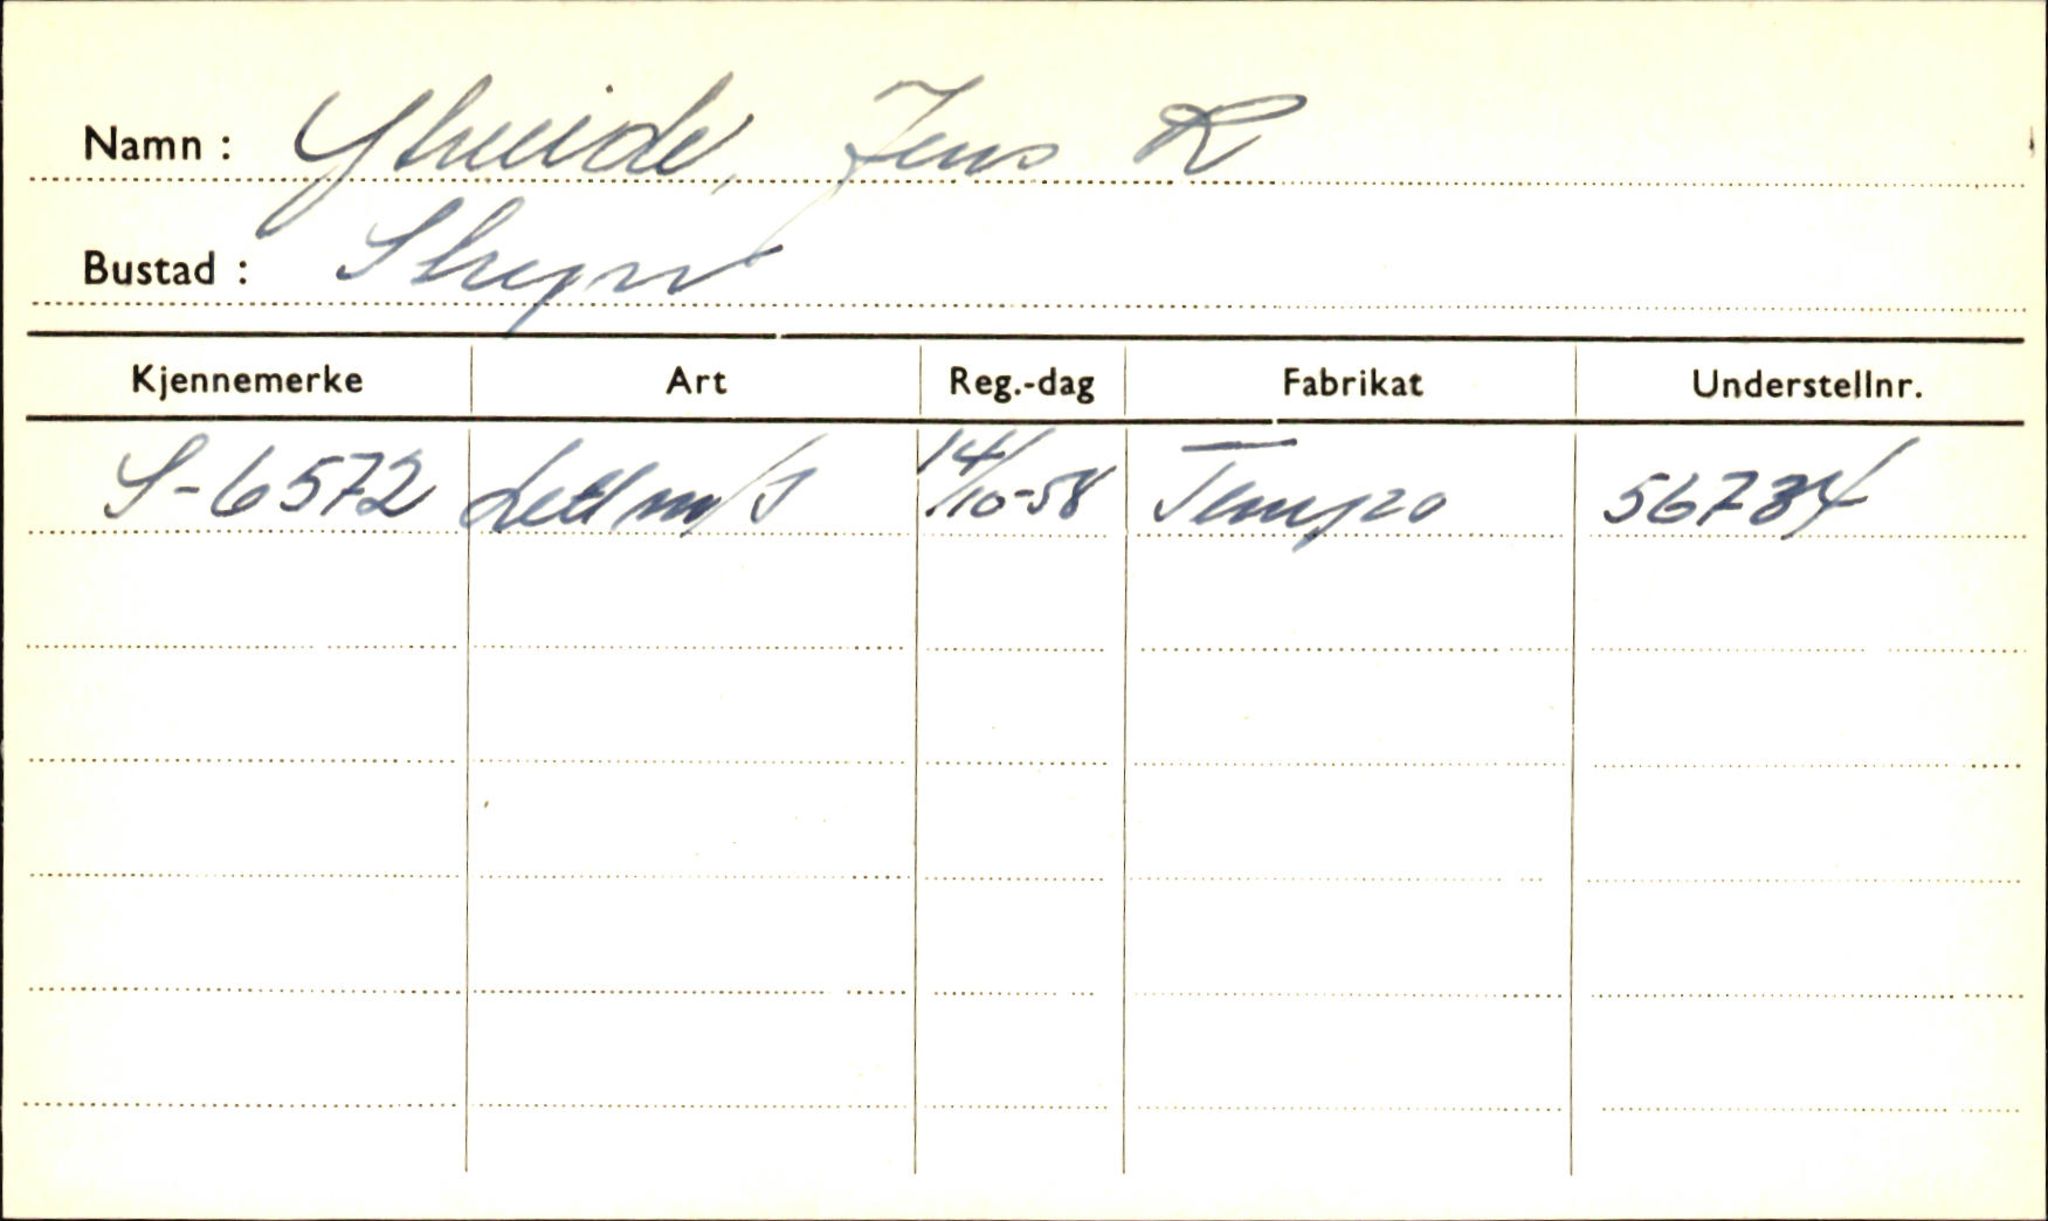 Namn : Yhreide, Jens R
Bustad : Stryn
Kjennemerke Art Reg.-dag Fabrikat Understellnr.
S-6572 Lett m/s 14/10-58 Tempo 56784